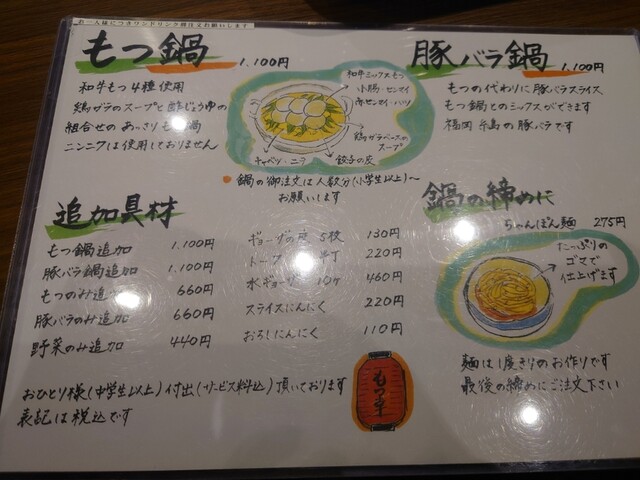 お一人様につき1ドリンク御注文お願いします
もつ鍋 1.100円
和牛もつ4種使用
鶏ガラのスープと酢じょうゆの
組合せのあっさりもつ鍋
ニンニクは使用しておりません
和牛ミックスもつ
小腸・センマイ
赤センマイ・ハツ
鶏ガラベースの
スープ
キャベツ・ニラ
餃子の皮
鍋の御注文は人数分(小学生以上)〜
お願いします
豚バラ鍋 1.100円
もつの代わりに豚バラスライス
もつ鍋とのミックスができます
福岡糸島の豚バラです
追加具材
もつ鍋追加 1.100円
豚バラ鍋追加 1.100円
もつのみ追加 660円
豚バラのみ追加 660円
野菜のみ追加 440円
ギョーザの皮 5枚 130円
トーフ 半丁 220円
水ギョーザ 10ヶ 460円
スライスにんにく 220円
おろしにんにく 110円
おひとり様(中学生以上)付出(サービス料込)頂いております
表記は税込です
もつ幸
鍋の締めに
ちゃんぽん麺 275円
たっぷりの
ゴマで
仕上げます
麺は1度きりのお作りです
最後の締めにご注文下さい